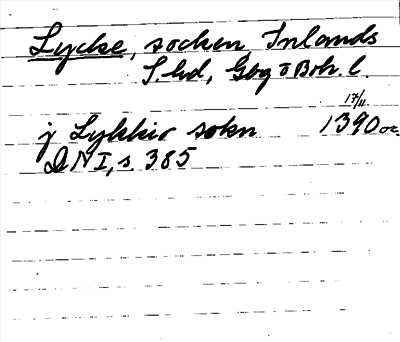 Lycke, socken, Inlands
S. hd, Gbg o Boh. l.
17/11
j Lykkir sokn 1390 or.
DN I, s. 385